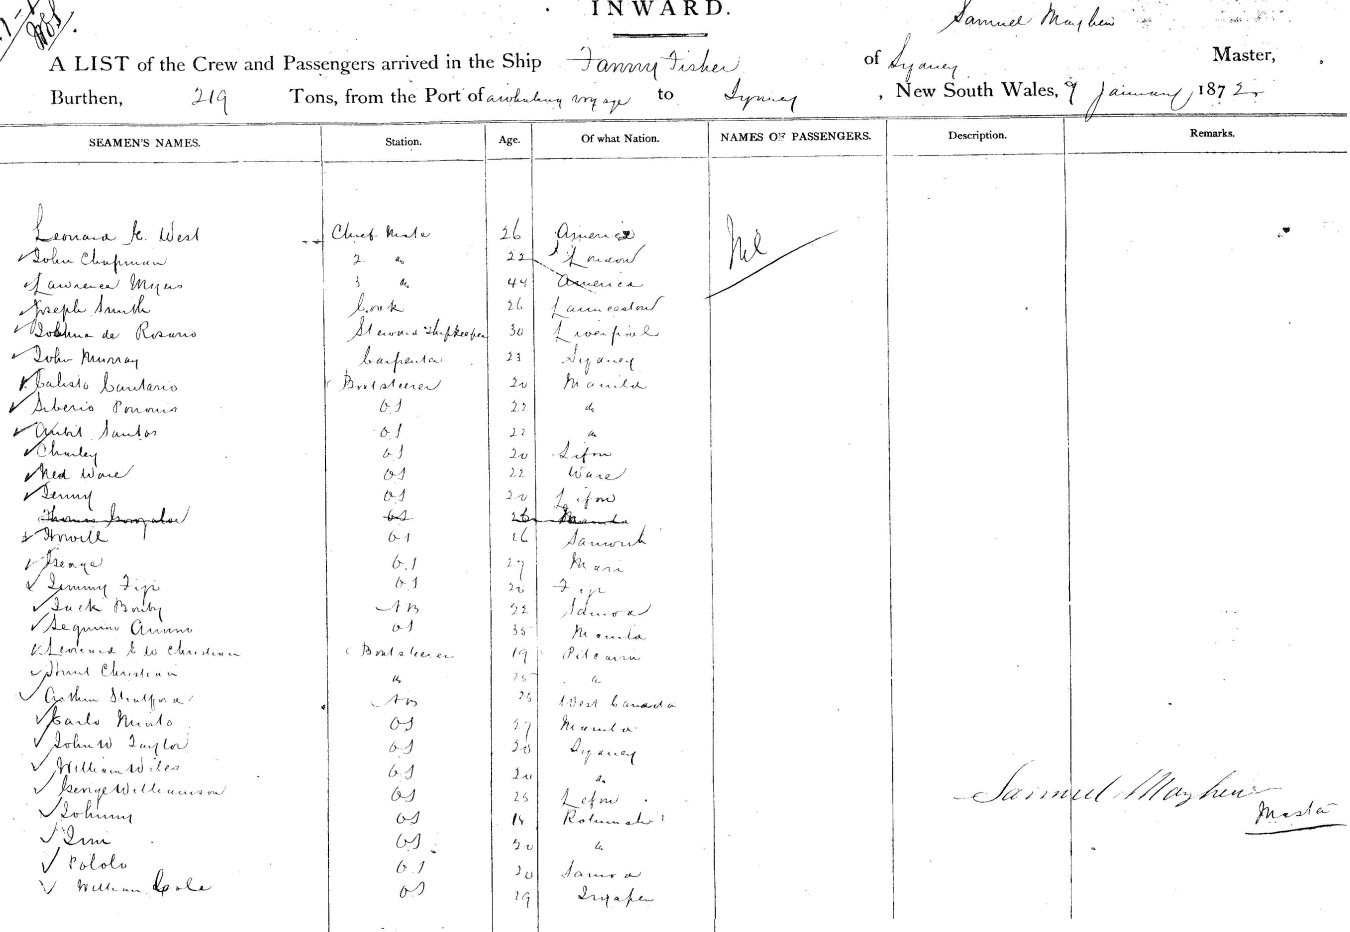 INWARD.
Samuel Mayhew
A LIST of the Crew and Passengers arrived in the Ship Fanny Fisher of Sydney Master,
Burthen, 219 Tons, from the Port of a whaling voyage to Sydney, New South Wales, 9 January 1872
SEAMEN'S NAMES. Station. Age. Of what Nation. NAMES OF PASSENGERS. Description. Remarks.
Leonard G. West Chief Mate 26 America Nil
John Chapman 2 do 22 London
Lawrence Myers 3 do 44 America
Joseph Smith Cook 26 Launceston
de Rosario Steward Shipkeeper 30 Liverpool
John Murray Carpenter 23 Sydney
Calisto Boatsteerer 20 Manila
Siberio OS 22 do
Santos OS 22 do
Charley OS 20 Lifou
Ned Ware OS 22 Ware
Jenny OS 20 Lifou
Thomas Gonzales OS 26 Manila
Howill OS 26
George OS 27
Jimmy Fiji OS 20 Fiji
Jack AB 22 Samoa
OS 35 Manila
Leonard E W Christian Boatsteerer 19 Pitcairn
Hunt Christian do 25 do
Arthur Stratford AB 25 West Canada
Carlo OS 27 Manila
John W Taylor OS 20 Sydney
William Wiles OS 20 do
George Williamson OS 25 Lefou
Johnny OS 18 Rotumah
Jim OS 20 do
Pololo OS 20 Samoa
William Cole OS 29
Samuel Mayhew
Master